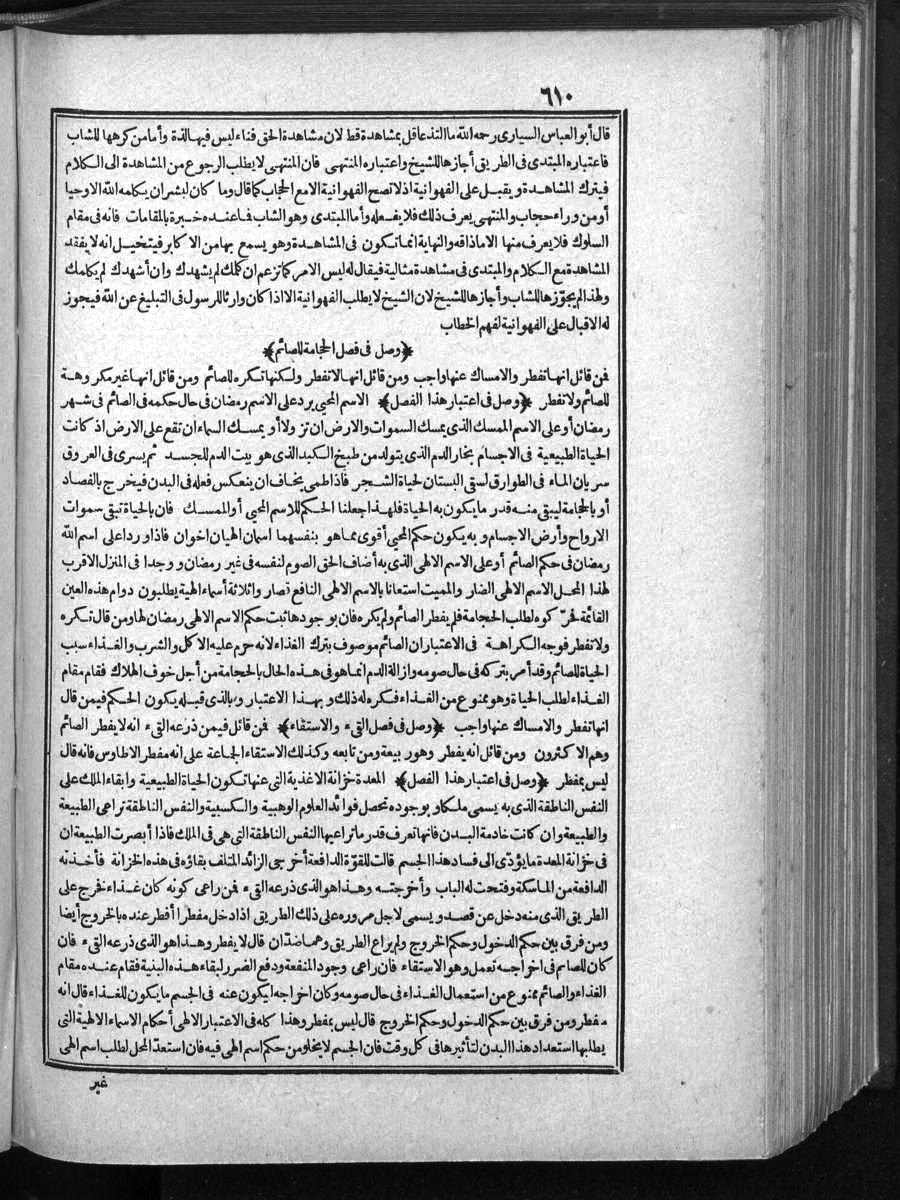 ٦١٠
قال أبو العباس السيارى رحمه الله ما التذ عاقل بمشاهدة قط لان مشاهدة الحق فناء ليس فيها لذة وأما من كرهها للشاب
فاعتباره المبتدى فى الطريق أجازها للشيخ واعتباره المنتهى فان المنتهى لا يطلب الرجوع من المشاهدة الى الكلام
فيترك المشاهدة ويقبل على الفهوانية اذ لا تصح الفهوانية الا مع الحجاب كما قال وما كان لبشر ان يكلمه الله الا وحيا
أو من وراء حجاب والمنتهى يعرف ذلك فلا يفعله وأما المبتدى وهو الشاب فما عنده خبرة بالمقامات فانه فى مقام
السلوك فلا يعرف منها الا ما ذاقه والنهاية انما تكون فى المشاهدة وهو يسمع بها من الاكابر فيتخيل انه لا يفقد
المشاهدة مع الكلام والمبتدى فى مشاهدة مثالية فيقال له ليس الامر كما تزعم ان كلمك لم يشهدك وان أشهدك لم يكلمك
ولهذا لم يجوّزها للشاب وأجازها للشيخ لان الشيخ لا يطلب الفهوانية الا اذا كان وارثا للرسول فى التبليغ عن الله فيجوز
له الاقبال على الفهوانية لفهم الخطاب
﴿وصل فى فصل الحجامة للصائم﴾
فمن قائل انها تفطر والامساك عنها واجب ومن قائل انها لا تفطر ولكنها تكره للصائم ومن قائل انها غير مكروهة
للصائم ولا تفطر ﴿وصل فى اعتبار هذا الفصل﴾ الاسم المحيى يرد على الاسم رمضان فى حال حكمه فى الصائم فى شهر
رمضان أو على الاسم الممسك الذى يمسك السموات والارض ان تزولا أو يمسك السماء ان تقع على الارض اذ كانت
الحياة الطبيعية فى الاجسام بخار الدم الذى يتولد من طبخ الكبد الذى هو بيت الدم للجسد ثم يسرى فى العروق
سريان الماء فى الطوارق لسقى البستان لحياة الشجر فاذا طمى يخاف ان ينعكس فعله فى البدن فيخرج بالفصاد
أو بالحجامة ليبقى منه قدر ما يكون به الحياة فلهذا جعلنا الحكم للاسم المحيى أو الممسك فان بالحياة تبقى سموات
الارواح وأرض الاجسام وبه يكون حكم المحيى أقوى مما هو بنفسهما اسمان الهيان اخوان فاذا ورد اعلى اسم الله
رمضان فى حكم الصائم أو على الاسم الالهى الذى به أضاف الحق الصوم لنفسه فى غير رمضان ووجدا فى المنزل الاقرب
لهذا المحل الاسم الالهى الضار والمميت استعانا بالاسم الالهى النافع فصاروا ثلاثة أسماء الهية يطلبون دوام هذه العين
القائمة فحرّكوه لطلب الحجامة فلم يفطر الصائم ولم يكره فان بوجودها ثبت حكم الاسم الالهى رمضان لها ومن قال تكره
ولا تفطر فوجه الكراهة فى الاعتبار ان الصائم موصوف بترك الغذاء لانه حرم عليه الاكل والشرب والغذاء سبب
الحياة للصائم وقد أمر بتركه فى حال صومه وازالة الدم انما هو فى هذه الحال بالحجامة من أجل خوف الهلاك فقام مقام
الغذاء لطلب الحياة وهو ممنوع من الغذاء فكره له ذلك وبهذا الاعتبار وبالذى قبله يكون الحكم فيمن قال
انها تفطر والامساك عنها واجب ﴿وصل فى فصل القىء والاستقاء﴾ فمن قائل فيمن ذرعه القىء انه لا يفطر الصائم
وهم الاكثرون ومن قائل انه يفطر وهو ربيعة ومن تابعه وكذلك الاستقاء الجماعة على انه مفطر الا طاوس فانه قال
ليس بمفطر ﴿وصل فى اعتبار هذا الفصل﴾ المعدة خزانة الاغذية التى عنها تكون الحياة الطبيعية وابقاء الملك على
النفس الناطقة الذى به يسمى ملكا وبوجوده تحصل فوائد العلوم الوهبية والكسبية والنفس الناطقة تراعى الطبيعة
والطبيعة وان كانت خادمة البدن فانها تعرف قدر ما تراعيها النفس الناطقة التى هى فى الملك فاذا أبصرت الطبيعة ان
فى خزانة المعدة ما يؤدّى الى فساد هذا الجسم قالت للقوّة الدافعة أخرجى الزائد المتلف بقاؤه فى هذه الخزانة فأخذته
الدافعة من الماسكة وفتحت له الباب وأخرجته وهذا هو الذى ذرعه القىء فمن راعى كونه كان غذاء فخرج على
الطريق الذى منه دخل عن قصد ويسمى لاجل مروره على ذلك الطريق اذا دخل مفطرا أفطر عنده بالخروج أيضا
ومن فرق بين حكم الدخول وحكم الخروج ولم يراع الطريق وهما ضدّان قال لا يفطر وهذا هو الذى ذرعه القىء فان
كان للصائم فى اخراجه تعمل وهو الاستقاء فان راعى وجود المنفعة ودفع الضرر لبقاء هذه البنية فقام عنده مقام
الغذاء والصائم ممنوع من استعمال الغذاء فى حال صومه وكان اخراجه ليكون عنه فى الجسم ما يكون للغذاء قال انه
مفطر ومن فرق بين حكم الدخول وحكم الخروج قال ليس بمفطر وهذا كله فى الاعتبار الالهى أحكام الاسماء الالهية التى
يطلبها استعداد هذا البدن لتأثيرها فى كل وقت فان الجسم لا يخلو من حكم اسم الهى فيه فان استعدّ المحل لطلب اسم الهى
غير